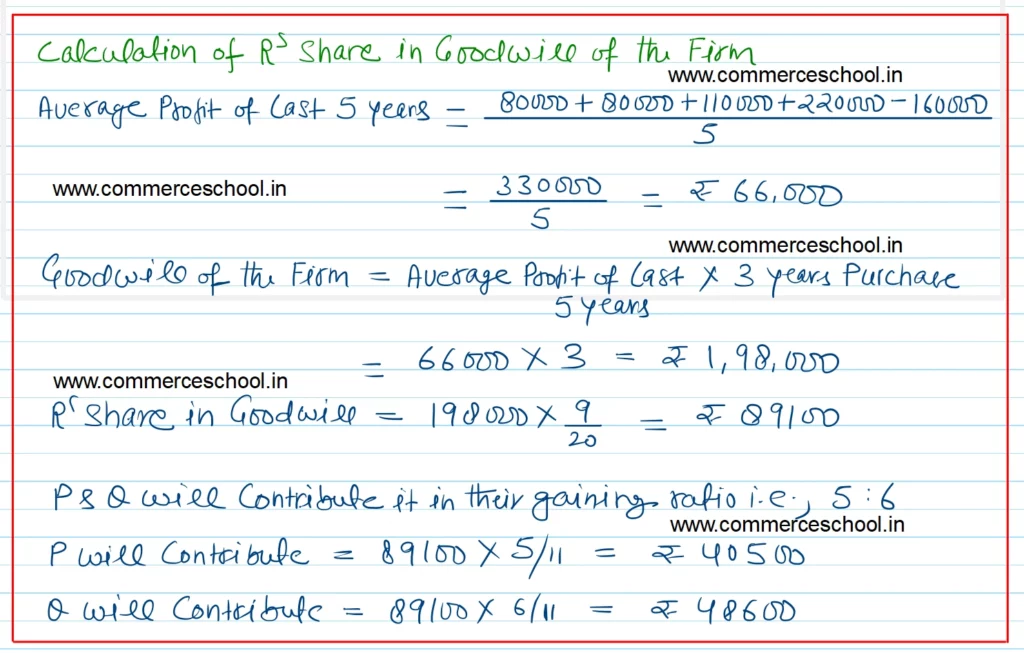 Calculation of R's Share in Goodwill of the Firm
www.commerceschool.in
Average Profit of Last 5 years = 80000 + 80000 + 110000 + 220000 - 160000
5
www.commerceschool.in
= 330000 = ₹ 66,000
5
www.commerceschool.in
Goodwill of the Firm = Average Profit of Last × 3 years Purchase
5 years
= 66000 × 3 = ₹ 1,98,000
www.commerceschool.in
R's Share in Goodwill = 198000 × 9 = ₹ 89100
20
P & Q will Contribute it in their gaining ratio i.e., 5:6
www.commerceschool.in
P will Contribute = 89100 × 5/11 = ₹ 40500
Q will Contribute = 89100 × 6/11 = ₹ 48600